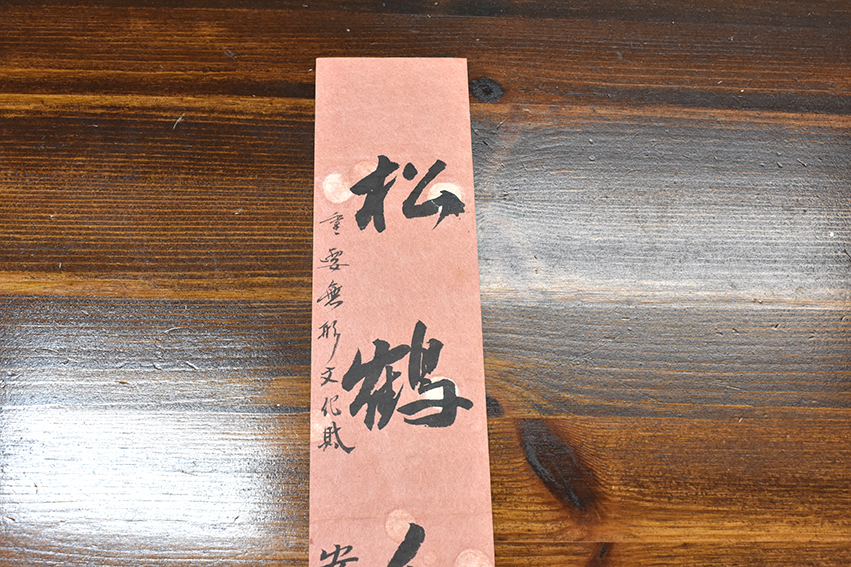 松鶴
重要無形文化財
安